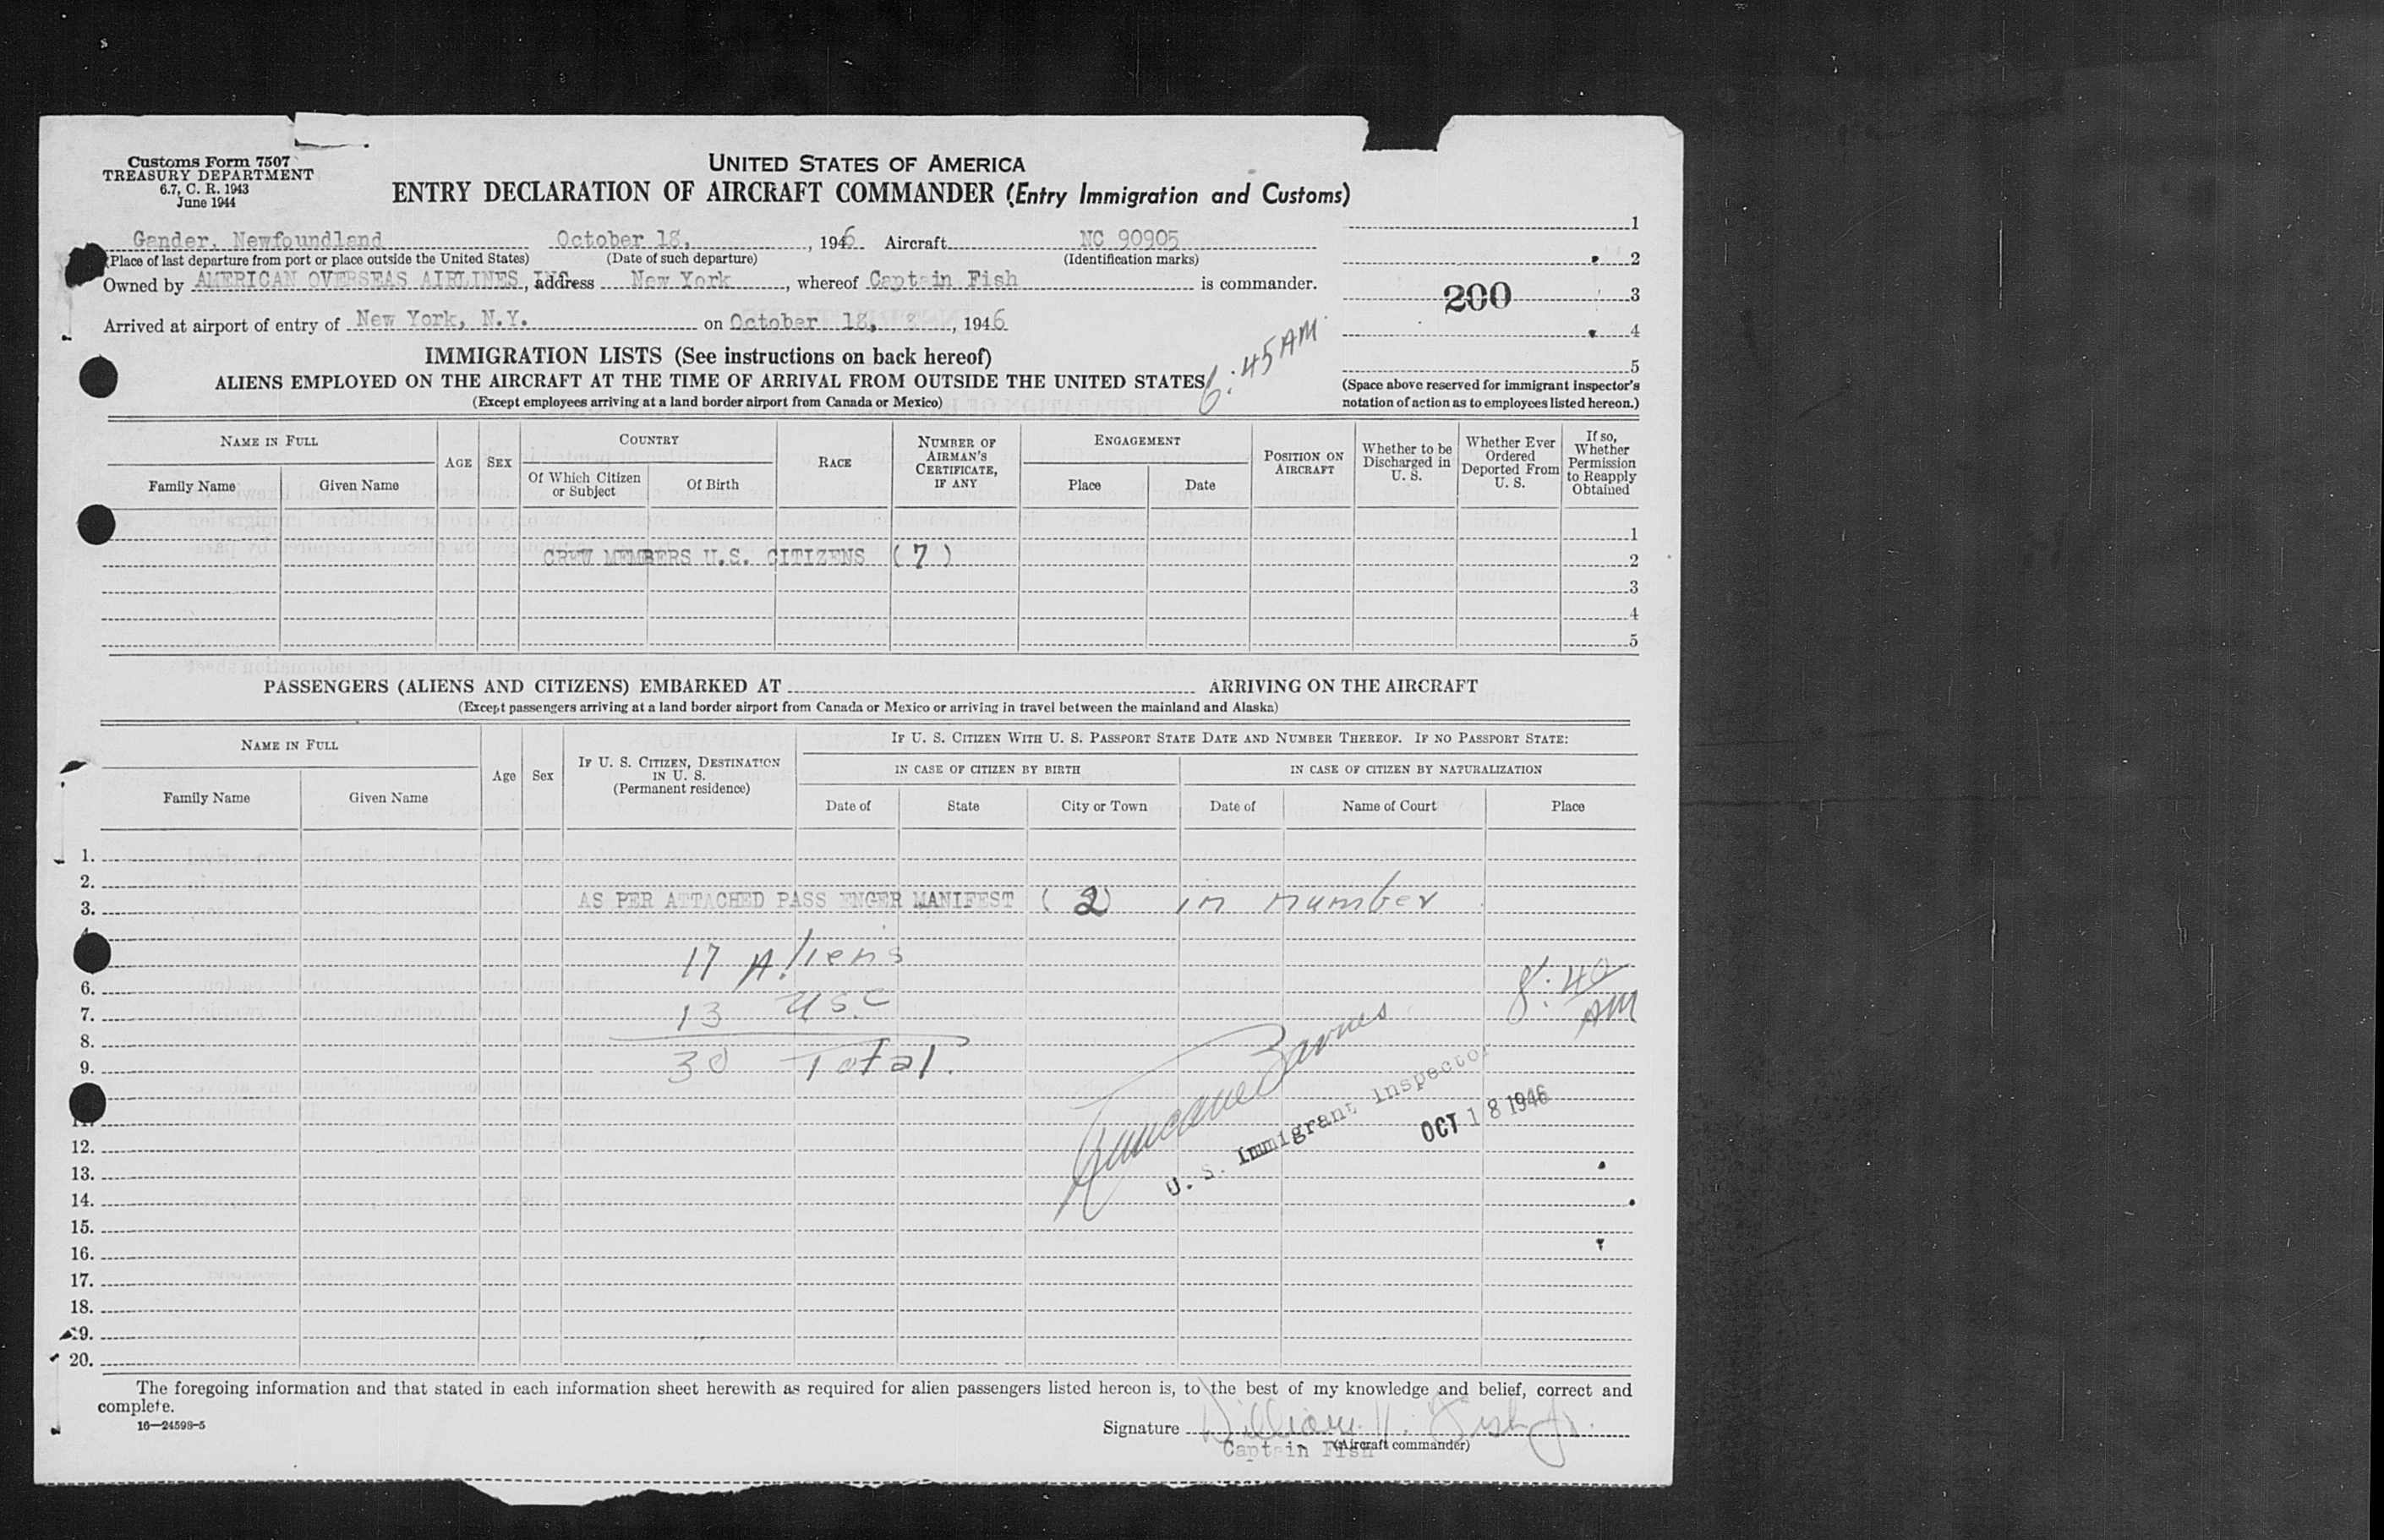 Customs Form 7507
TREASURY DEPARTMENT
6.7, C. R. 1943
June 1944
UNITED STATES OF AMERICA
ENTRY DECLARATION OF AIRCRAFT COMMANDER (Entry Immigration and Customs)
Gander, Newfoundland October 18, , 1946 Aircraft NC 90905
(Place of last departure from port or place outside the United States) (Date of such departure) (Identification marks)
Owned by AMERICAN OVERSEAS AIRLINES, INC. , address New York , whereof Captain Fish is commander.
Arrived at airport of entry of New York, N.Y. on October 18, , 1946
1
2
200 3
4
5
(Space above reserved for immigrant inspector's
notation of action as to employees listed hereon.)
6:45 AM
IMMIGRATION LISTS (See instructions on back hereof)
ALIENS EMPLOYED ON THE AIRCRAFT AT THE TIME OF ARRIVAL FROM OUTSIDE THE UNITED STATES
(Except employees arriving at a land border airport from Canada or Mexico)
NAME IN FULL
Family Name Given Name
AGE SEX
COUNTRY
Of Which Citizen or Subject Of Birth
RACE
NUMBER OF AIRMAN'S CERTIFICATE, IF ANY
ENGAGEMENT
Place Date
POSITION ON AIRCRAFT
Whether to be Discharged in U. S.
Whether Ever Ordered Deported From U. S.
If so, Whether Permission to Reapply Obtained
1
CREW MEMBERS U.S. CITIZENS (7) 2
3
4
5
PASSENGERS (ALIENS AND CITIZENS) EMBARKED AT ARRIVING ON THE AIRCRAFT
(Except passengers arriving at a land border airport from Canada or Mexico or arriving in travel between the mainland and Alaska)
NAME IN FULL
Family Name Given Name
Age Sex
IF U. S. CITIZEN, DESTINATION IN U. S.
(Permanent residence)
IF U. S. CITIZEN WITH U. S. PASSPORT STATE DATE AND NUMBER THEREOF. IF NO PASSPORT STATE:
IN CASE OF CITIZEN BY BIRTH IN CASE OF CITIZEN BY NATURALIZATION
Date of State City or Town Date of Name of Court Place
1.
2.
3. AS PER ATTACHED PASSENGER MANIFEST (2) in number
17 Aliens
6.
7. 13 USC
8.
9. 30 Total.
8:40 AM
U. S. Immigrant Inspector
OCT 18 1946
11.
12.
13.
14.
15.
16.
17.
18.
19.
20.
The foregoing information and that stated in each information sheet herewith as required for alien passengers listed hereon is, to the best of my knowledge and belief, correct and
complete.
16—24598-5
Signature William H. Fish Jr.
Captain Fish (Aircraft commander)